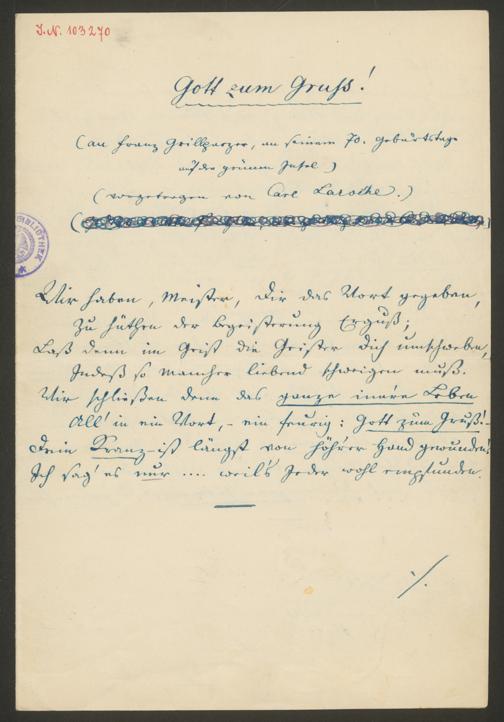 I.N. 103270
Gott zum Gruß!
(an Franz Grillparzer, an seinem 70. Geburtstage
auf der grünen Insel)
(vorgetragen von Carl Laroche.)
BIBLIOTHEK
Wir haben, Meister, Dir das Wort gegeben,
Zu hüthen der Begeisterung Erguß;
Laß denn im Geist die Geister Dich umschweben,
Indeß so mancher liebend schweigen muß.
Wir schließen denn das ganze inn're Leben
All' in ein Wort, – ein feurig: Gott zum Gruß! –
Dein Kranz ist längst von höh'rer Hand gewunden!
Ich sag' es nur .... weil's Jeder wohl empfunden.
./.